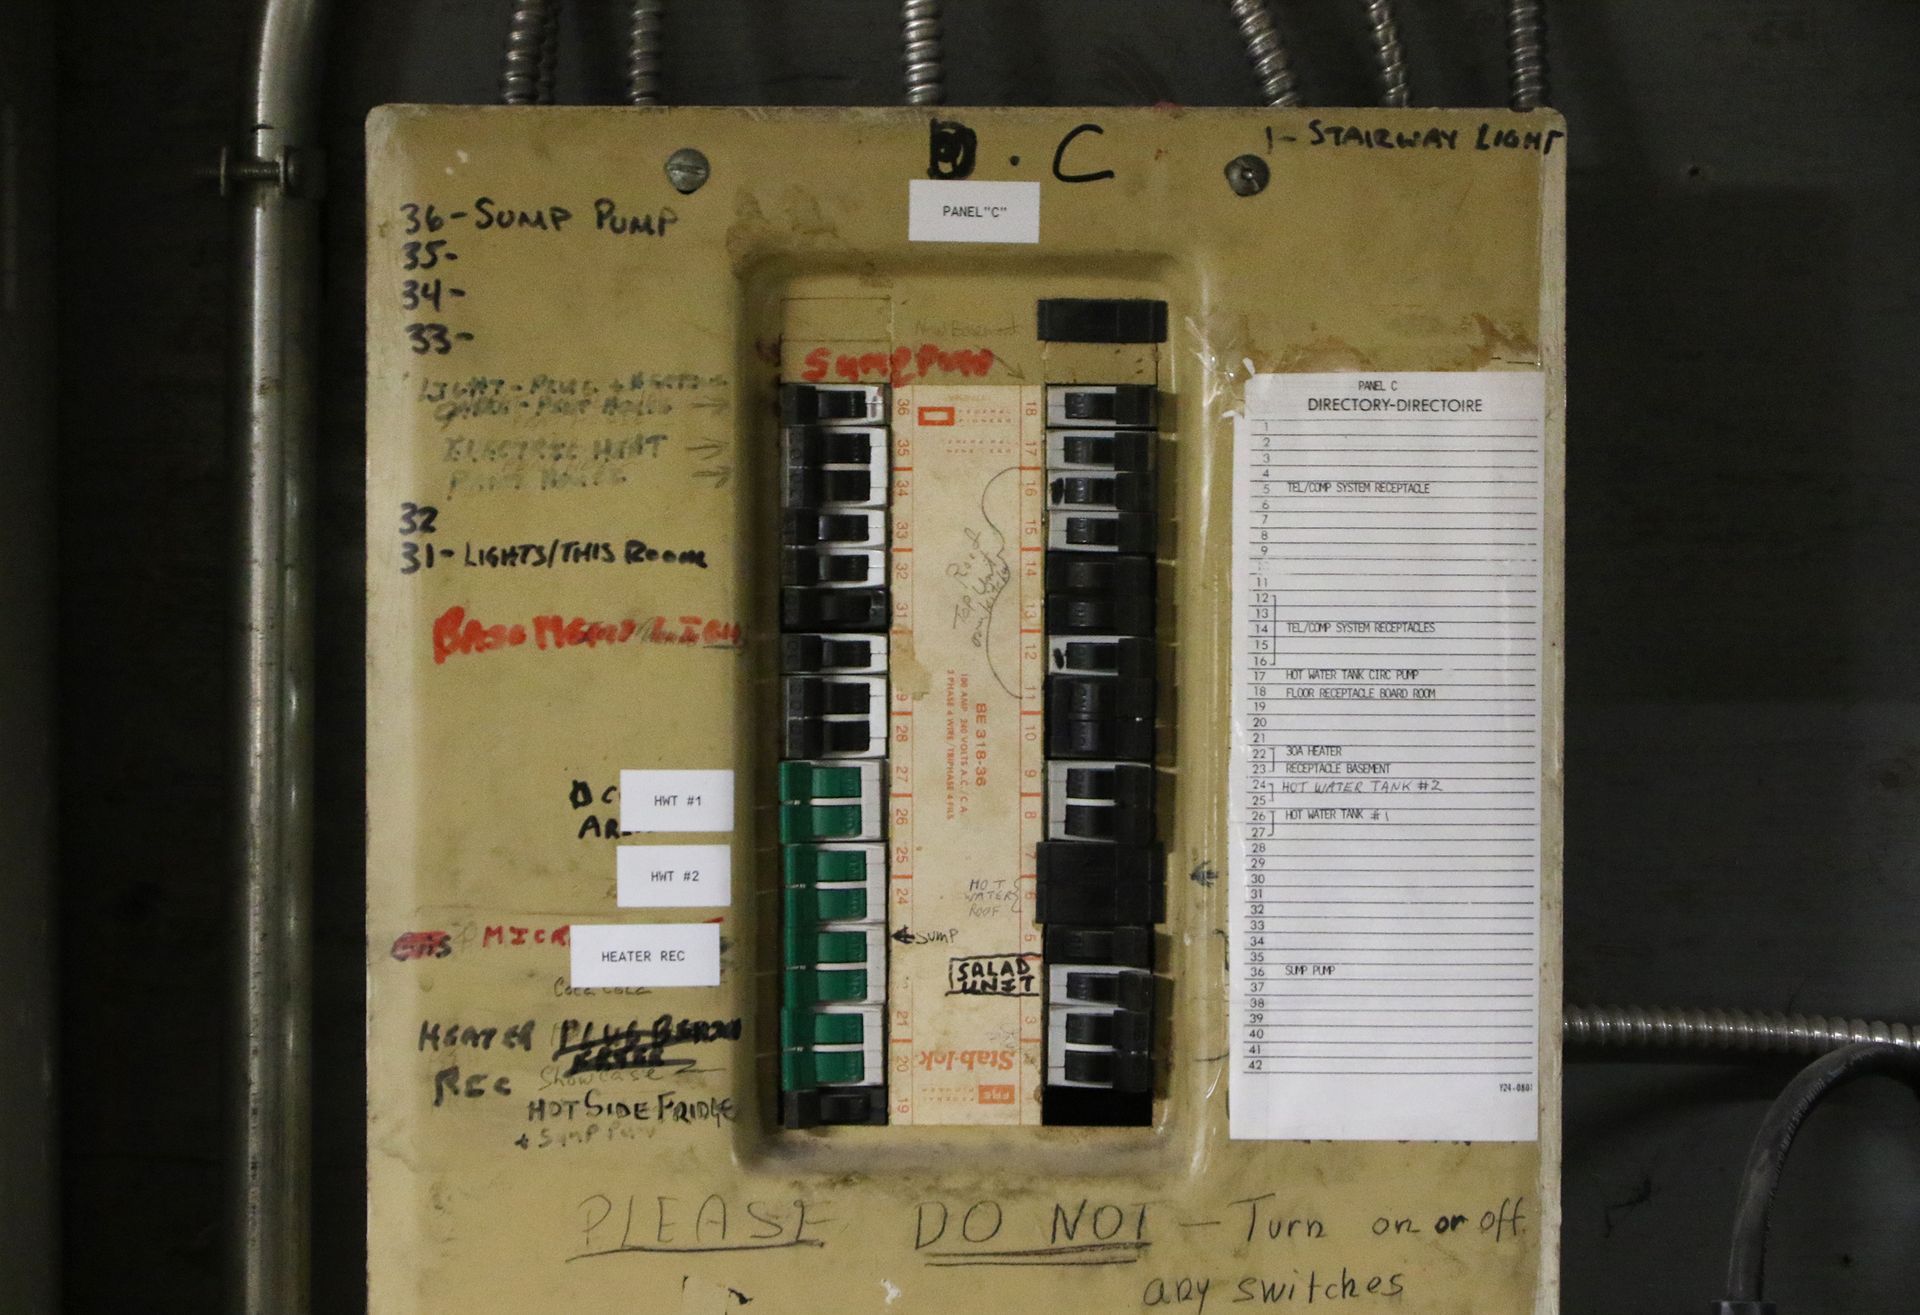 . C
1- STAIRWAY LIGHT
PANEL"C"
36- SUMP PUMP
35-
34-
33-
LIGHT - PLUG +
ELECTRIC HEAT
32
31- LIGHTS/THIS ROOM
SUMP PUMP
36
35
34
33
32
31
9
28
27
26
25
24
21
20
19
18
17
16
15
14
13
12
11
10
9
8
7
6
5
3
TOP ROOF
BE 318-36
100 AMP 240 VOLTS A.C./C.A.
3 PHASE 4 WIRE/TRIPHASE 4 FILS
HOT
WATER
ROOF
SUMP
SALAD
UNIT
Stab-lok
FPE
FEDERAL
PIONEER
BASEMENT
HWT #1
HWT #2
HEATER REC
Coca Cola
HEATER
REC
Showcase
HOT SIDE FRIDGE
+ SUMP PUMP
PANEL C
DIRECTORY-DIRECTOIRE
1
2
3
4
5 TEL/COMP SYSTEM RECEPTACLE
6
7
8
9
11
12
13
14 TEL/COMP SYSTEM RECEPTACLES
15
16
17 HOT WATER TANK CIRC PUMP
18 FLOOR RECEPTACLE BOARD ROOM
19
20
21
22 30A HEATER
23 RECEPTACLE BASEMENT
24 HOT WATER TANK #2
25
26 HOT WATER TANK #1
27
28
29
30
31
32
33
34
35
36 SUMP PUMP
37
38
39
40
41
42
Y24-0801
PLEASE DO NOT - Turn on or off
any switches